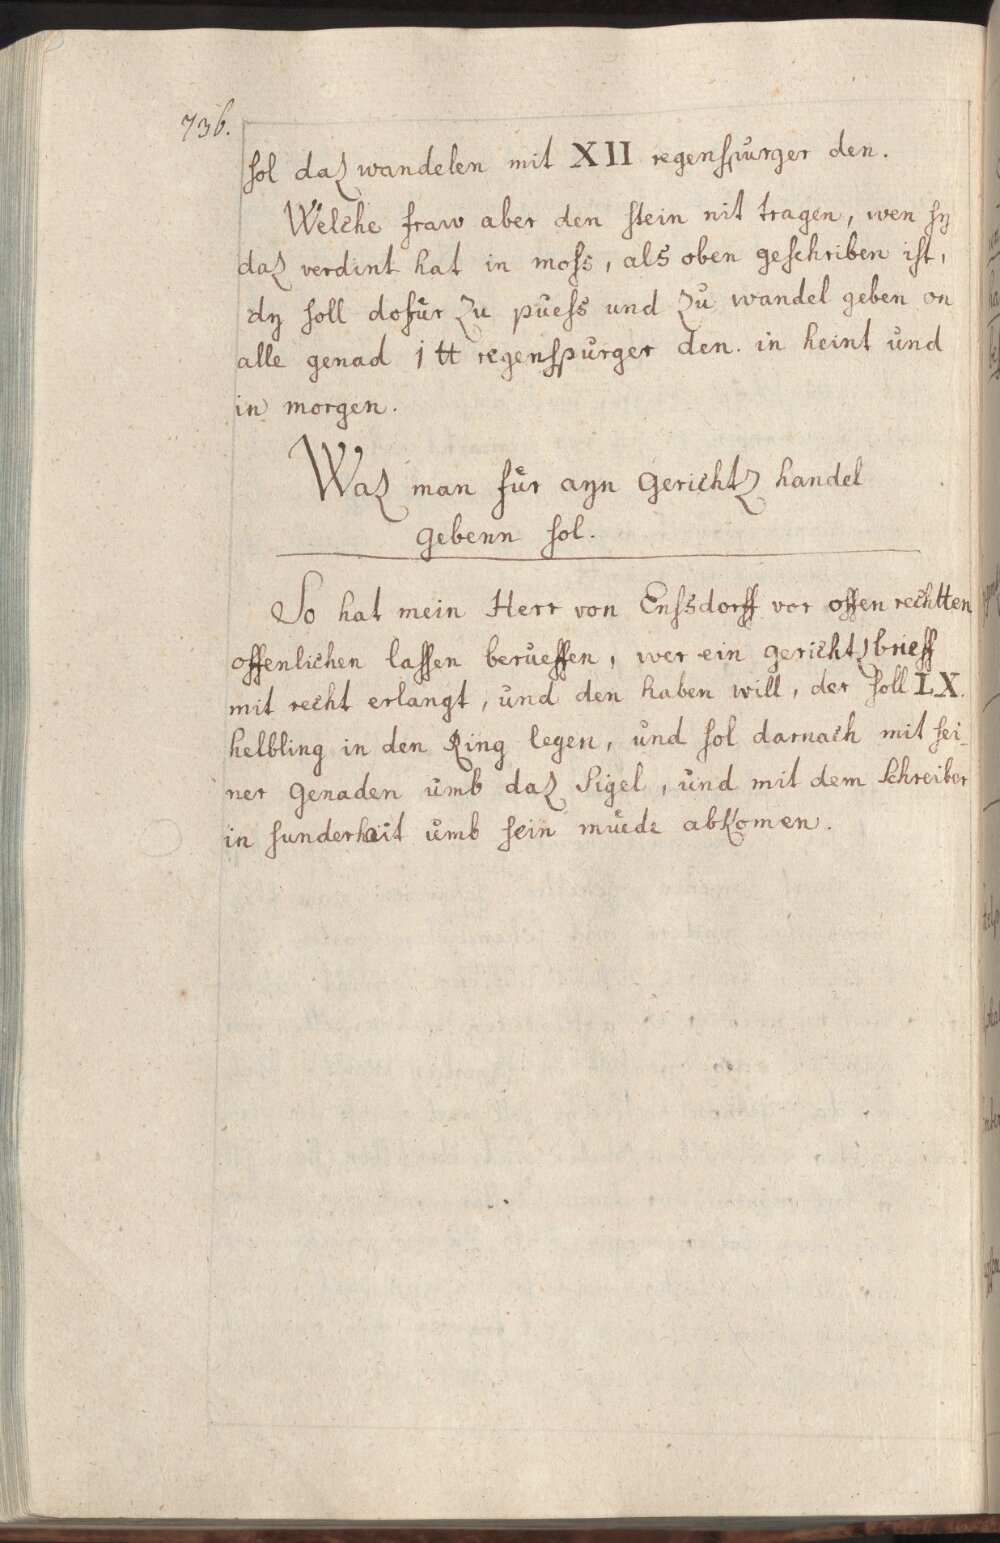 736.
sol daz wandelen mit XII regenspurger den.
Welche fraw aber den stein nit tragen, wen sy
daz verdint hat in moss, als oben geschriben ist,
dy soll dofür zu puess und zu wandel geben on
alle genad 1 ℔ regenspurger den. in heint und
in morgen.
Waz man für ayn Gerichtz handel
gebenn sol.
So hat mein Herr von Enssdorff vor offen rechtten
offenlichen lassen berueffen, wer ein gerichtz brieff
mit recht erlangt, und den haben will, der soll LX.
helbling in den Ring legen, und sol darnach mit sei-
ner Genaden umb daz Sigel, und mit dem Schreiber
in sunderhait umb sein muede abkomen.